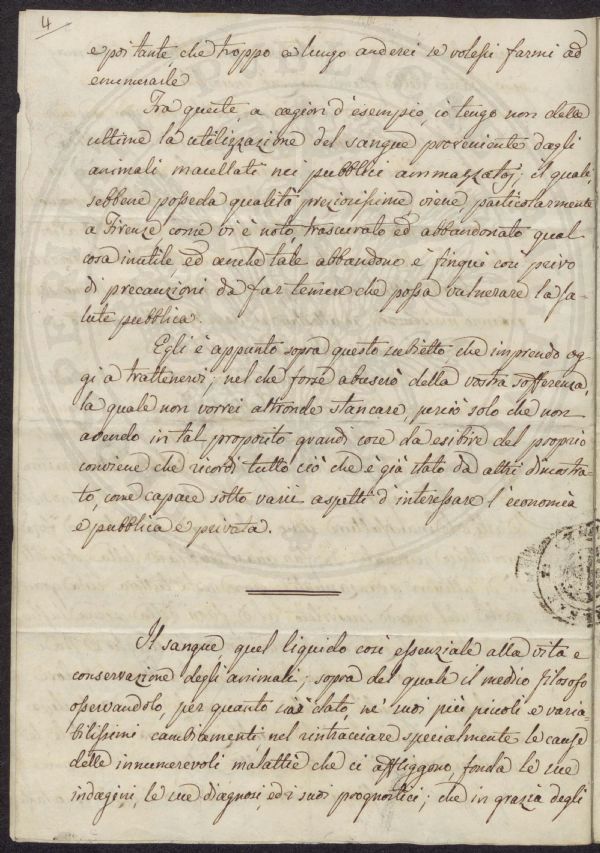 4
e poi tante, che troppo a lungo anderei se volessi farmi ad
enumerarle
Tra queste, a cagion d'esempio, io tengo non delle
ultime la utilizzazione del sangue proveniente dagli
animali macellati nei pubblici ammazzatoj; il quale,
sebbene posseda qualità preziosissime viene, particolarmente
a Firenze come vi è noto, trascurato ed abbandonato qual
cosa inutile, ed anche tale abbandono è finquì così privo
di precauzioni da far temere che possa vulnerare la sa-
lute pubblica.
Egli è appunto sopra questo subietto che imprendo og-
gi a trattenervi; nel che forse abuserò della vostra sofferenza,
la quale non vorrei altronde stancare, perciò solo che non
avendo in tal proposito grandi cose da esibire del proprio
conviene che ricordi tutto ciò che è già stato da altri dimostra-
to, come capace sotto varii aspetti d'interessare l'economia
e pubblica e privata.
Il sangue, quel liquido così essenziale alla vita e
conservazione degli animali; sopra del quale il medico filosofo
osservandolo, per quanto è dato, ne' suoi più piccoli e varia-
bilissimi cambiamenti, nel rintracciare specialmente le cause
delle innumerevoli malattie che ci affliggono, fonda le sue
indagini, le sue diagnosi, ed i suoi prognostici; che in grazia degli